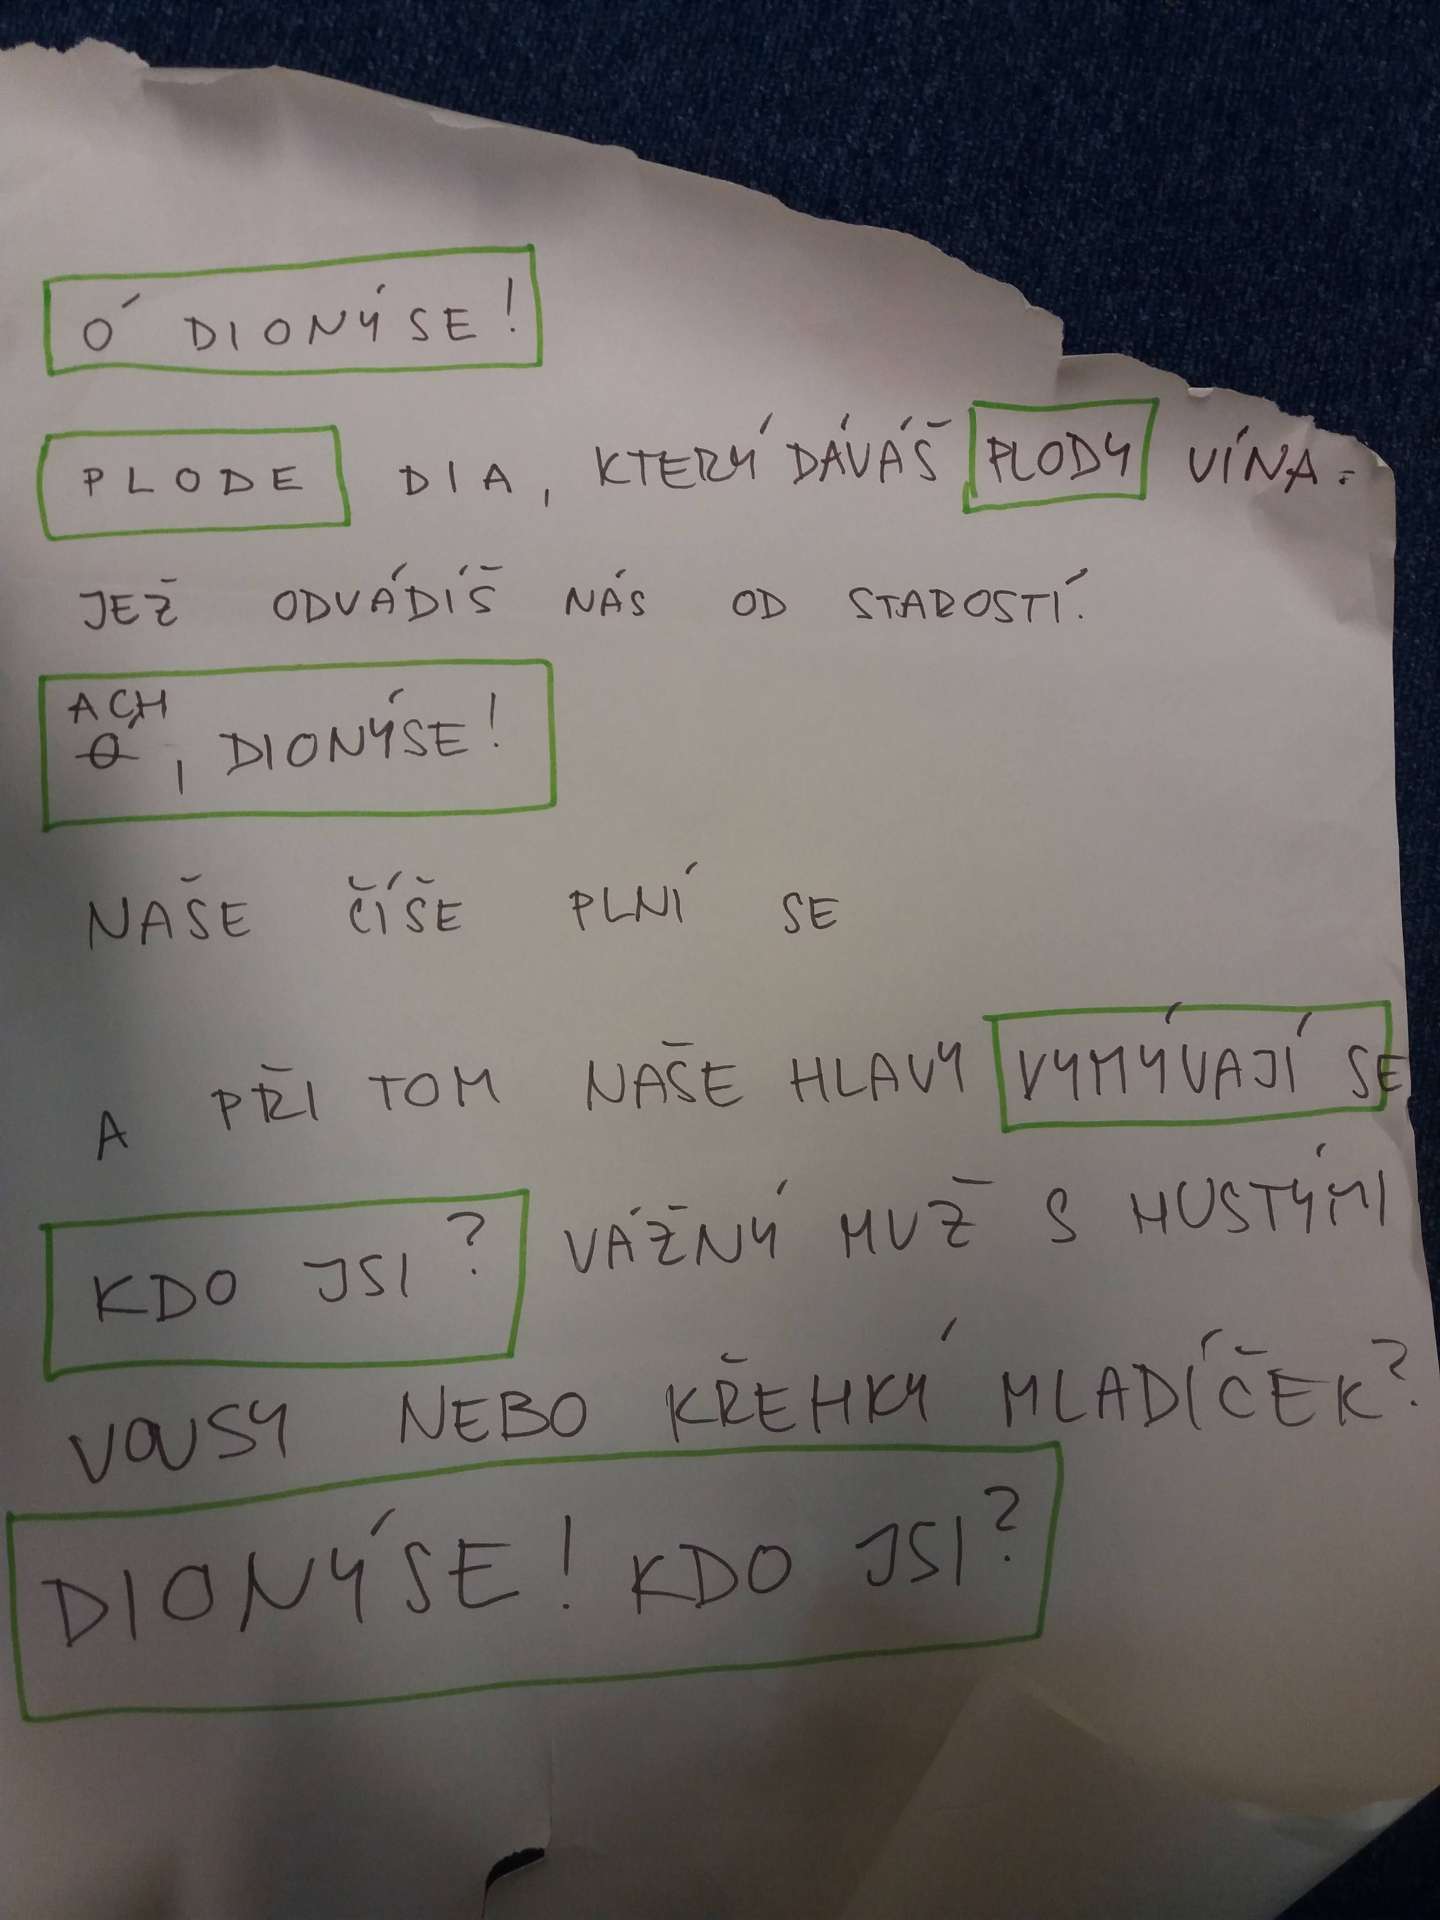 Ó DIONÝSE!
PLODE DIA, KTERÝ DÁVÁŠ PLODY VÍNA.
JEŽ ODVÁDÍŠ NÁS OD STAROSTÍ.
ACH
O, DIONÝSE!
NAŠE ČÍŠE PLNÍ SE
A PŘI TOM NAŠE HLAVY VYMÝVAJÍ SE
KDO JSI? VÁŽNÝ MUŽ S HUSTÝMI
VOUSY NEBO KŘEHKÝ MLADÍČEK?
DIONÝSE! KDO JSI?